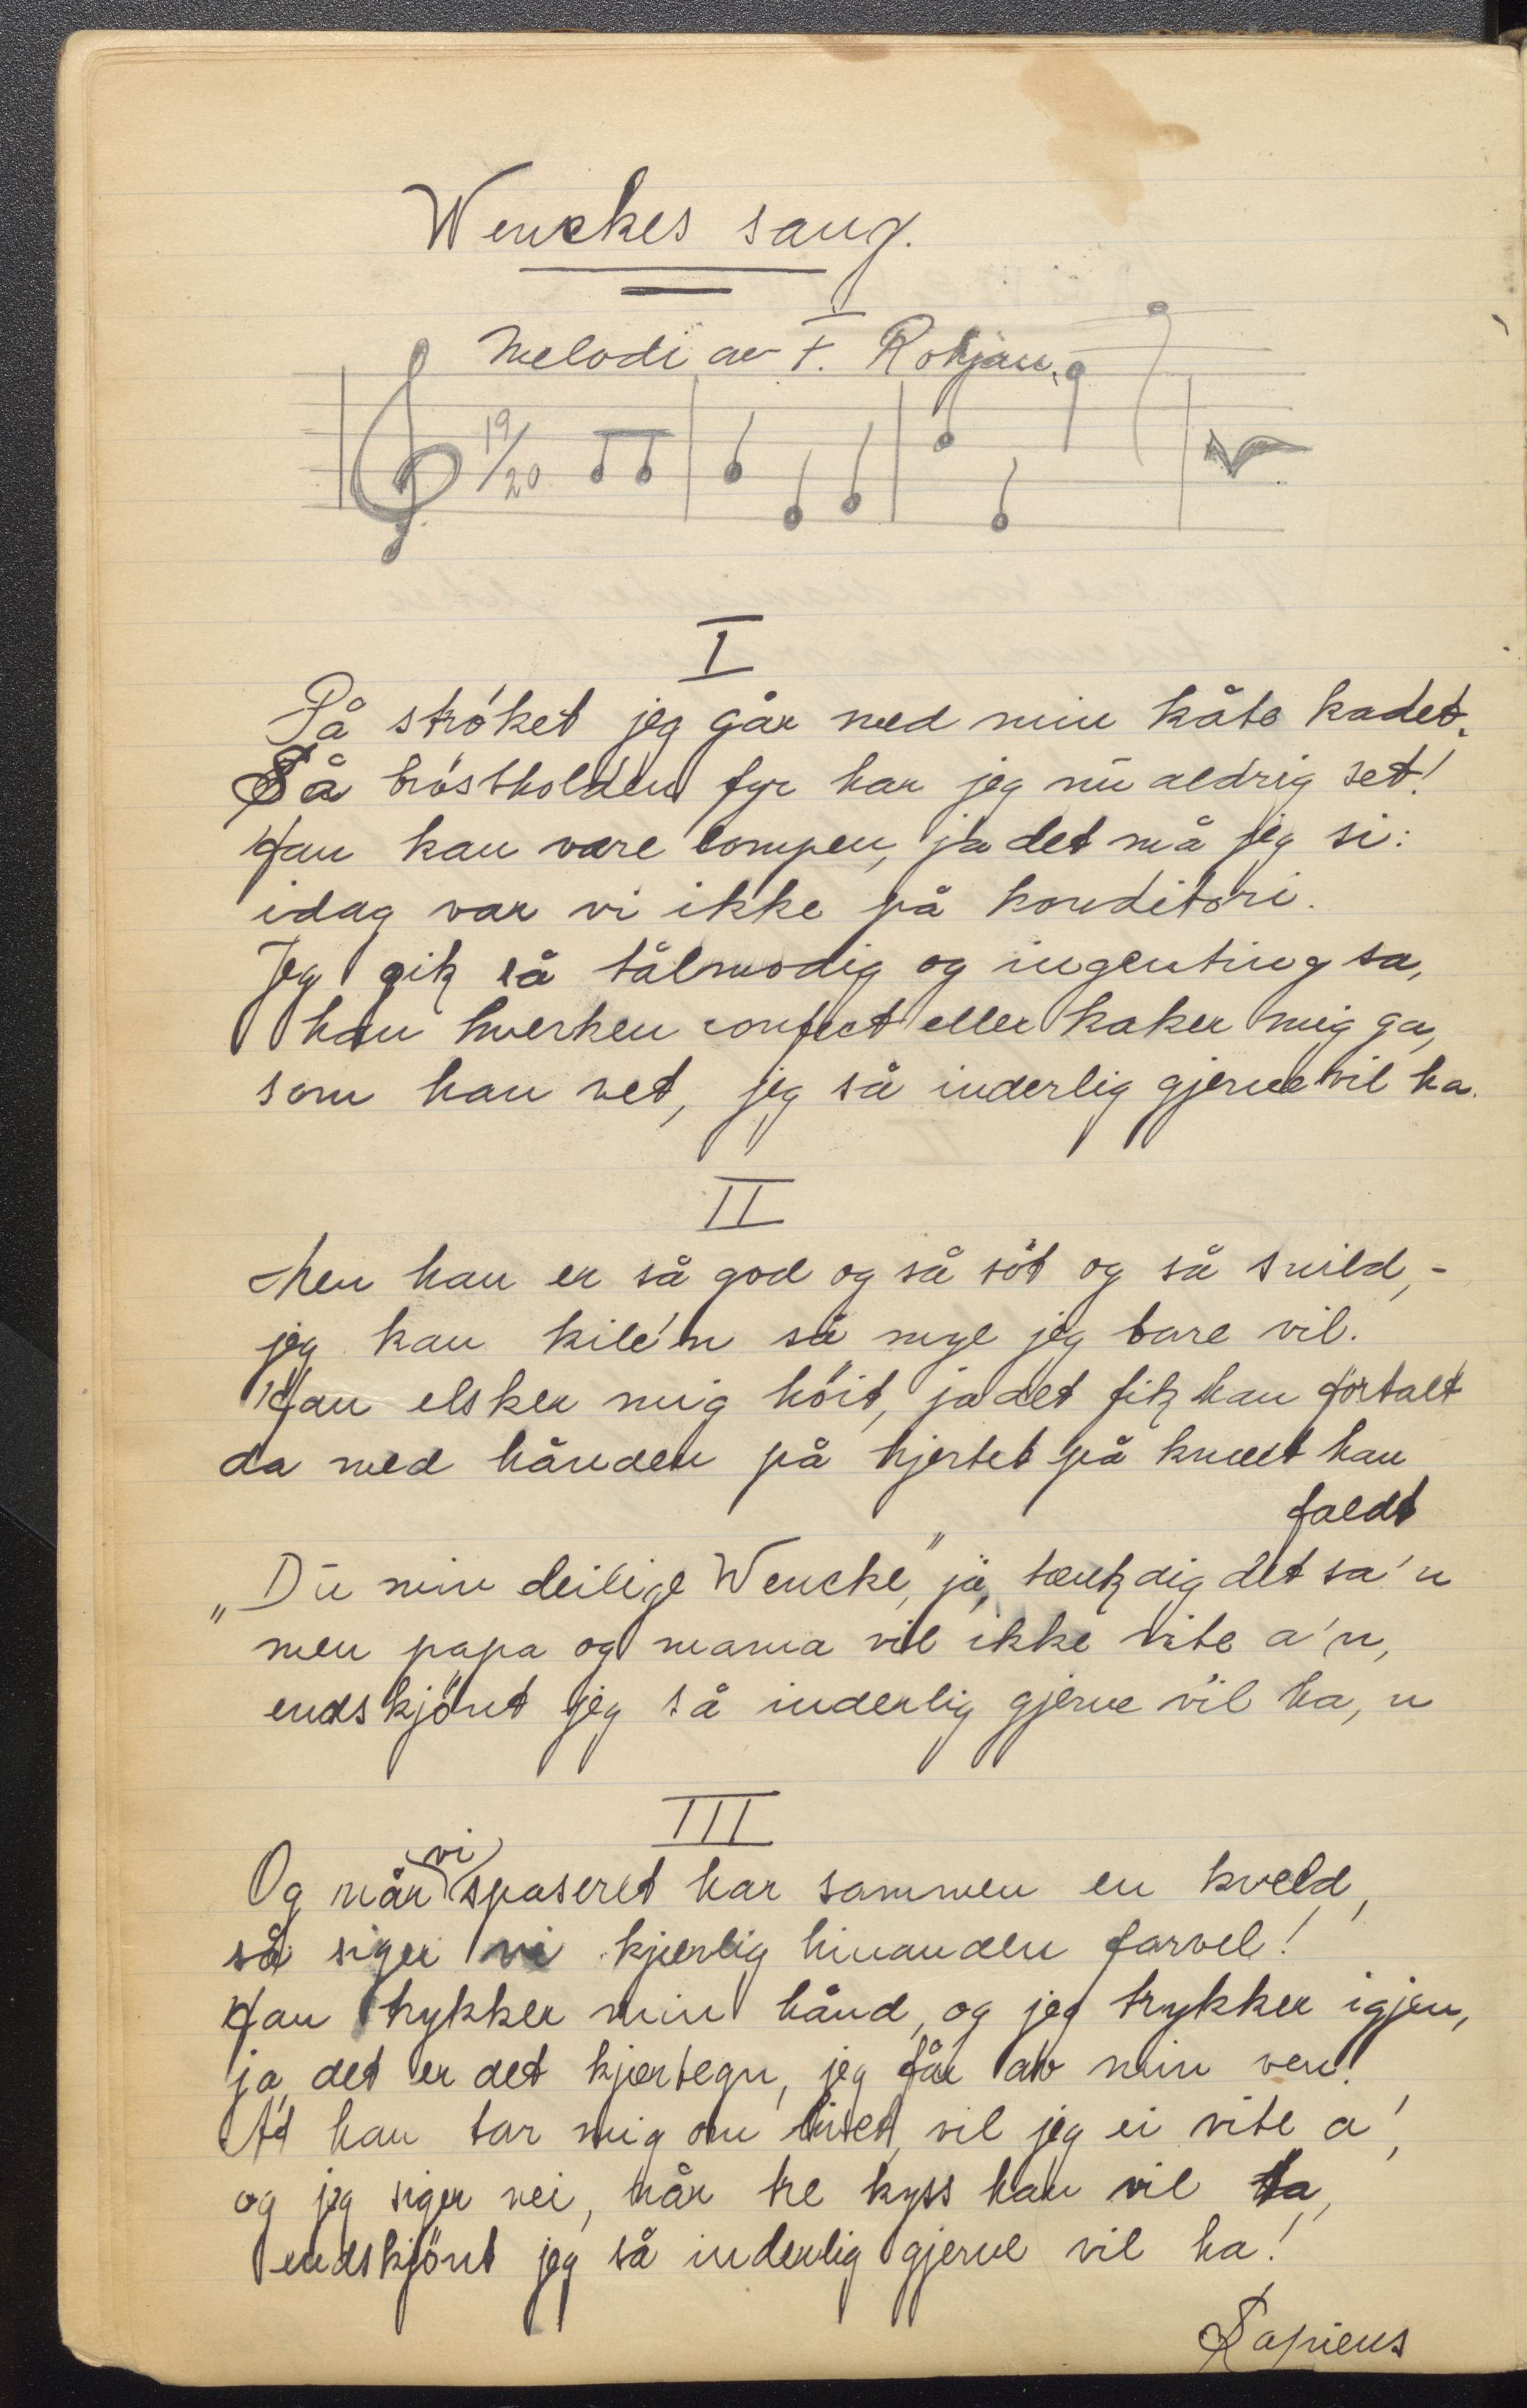 Wenckes sang.
Melodi av T. Rohjan.
19/20
I
På strøket jeg går med min kåte kadet.
Så brøstholden fyr har jeg nu aldrig set!
Han kan være lompen, ja det må jeg si:
idag var vi ikke på konditori.
Jeg gik så tålmodig og ingenting sa,
han hverken confect eller kaker mig ga,
som han vet, jeg så inderlig gjerne vil ha.
II
Men han er så god og så söt og så snild,-
jeg kan kile'n så mye jeg bare vil.
Han elsker mig höit, ja det fik han fortalt
da med hånden på hjertet på knæet han
faldt
„Du min deilige Wencke," ja, tænk dig det sa'n
men papa og mama vil ikke vite a'n,
endskjönt jeg så inderlig gjerne vil ha'n
III
Og når vi spaseret har sammen en kveld,
så siger vi kjærlig hinanden farvel!
Han trykker min hånd, og jeg trykker igjen,
ja, det er det kjærtegn, jeg får av min ven!
At han tar mig om livet, vil jeg ei vite a',
og jeg siger nei, når tre kyss han vil ta,
endskjönt jeg så inderlig gjerne vil ha!
Sapiens